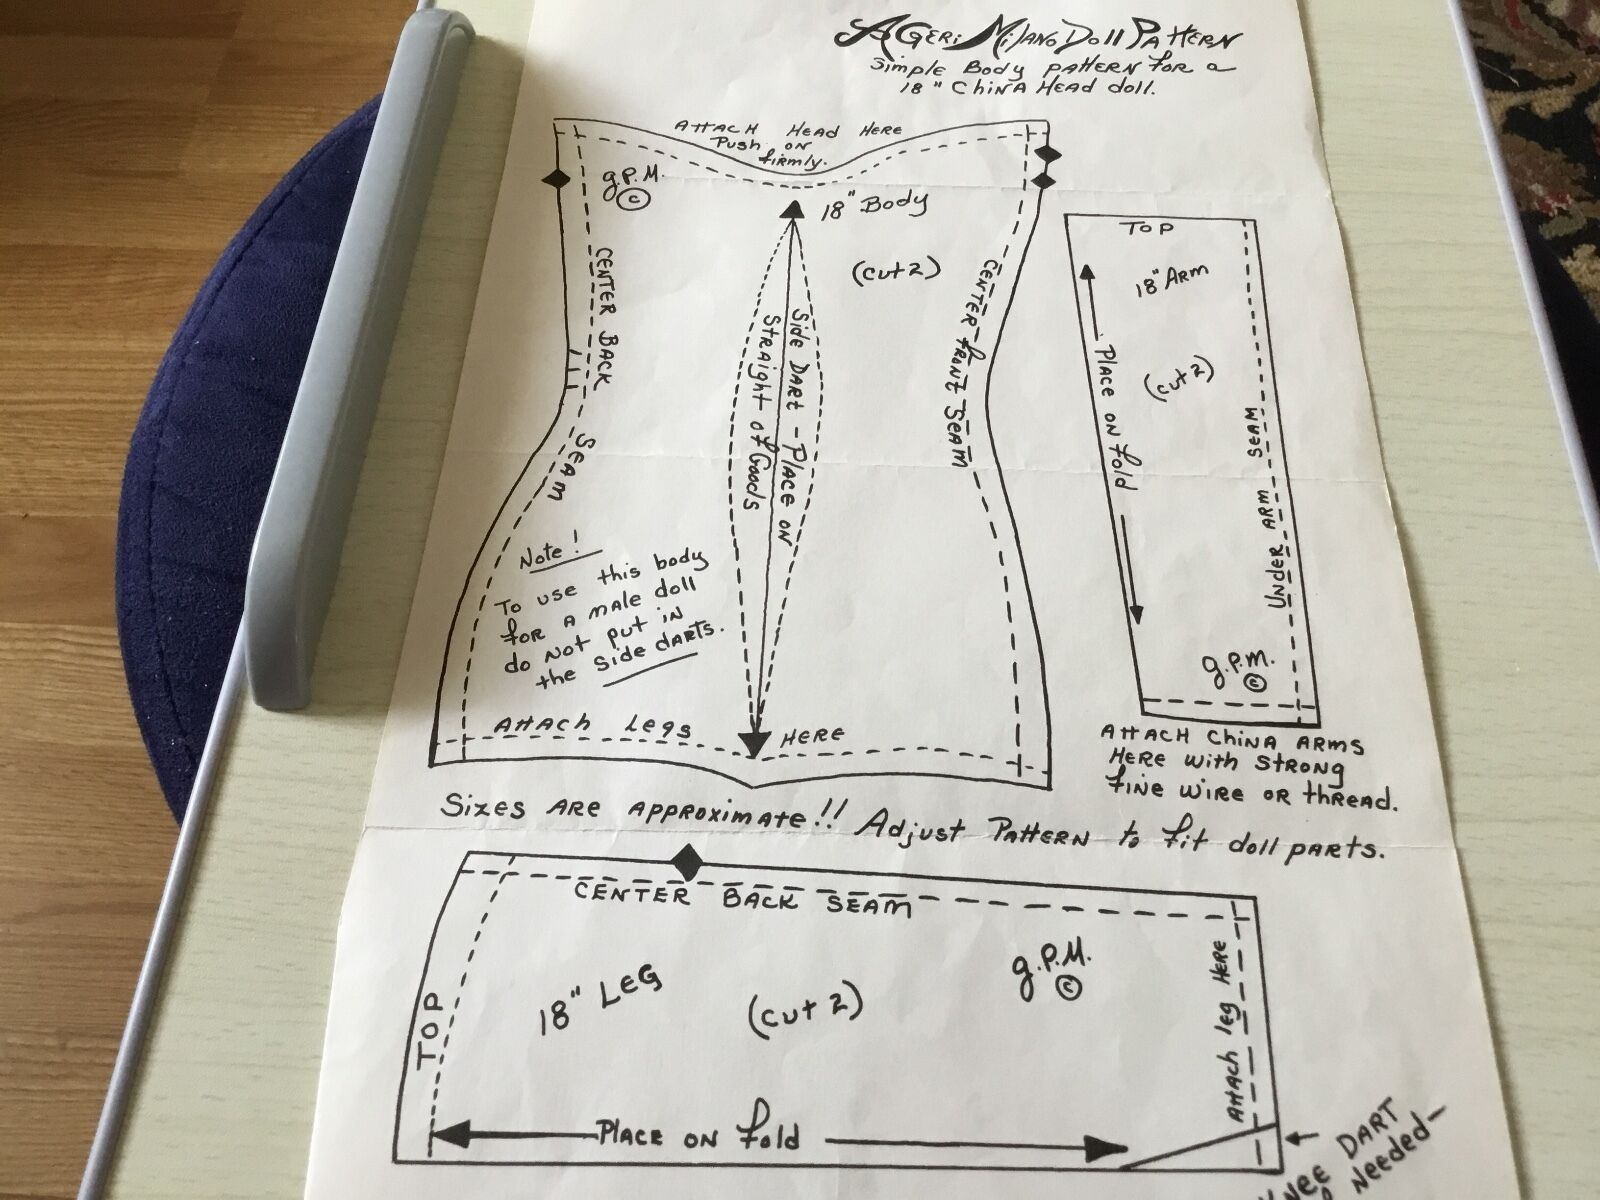 A Geri Milano Doll Pattern
Simple Body pattern for a
18" China Head doll.
Attach Head Here
Push on
firmly.
g.P.M.
©
18" Body
(cut 2)
Center Back Seam
Side Dart - Place on
Straight of Goods
Center Front Seam
Note!
To use this body
for a male doll
do not put in
the side darts.
Attach Legs Here
Top
18" Arm
(cut 2)
Place on fold
Under Arm Seam
g.P.M.
©
Attach China Arms
Here with strong
fine wire or thread.
Sizes are approximate!! Adjust Pattern to fit doll parts.
Center Back Seam
Top
18" Leg
(cut 2)
g.P.M.
©
Attach leg Here
Place on fold
Dart
Needed-